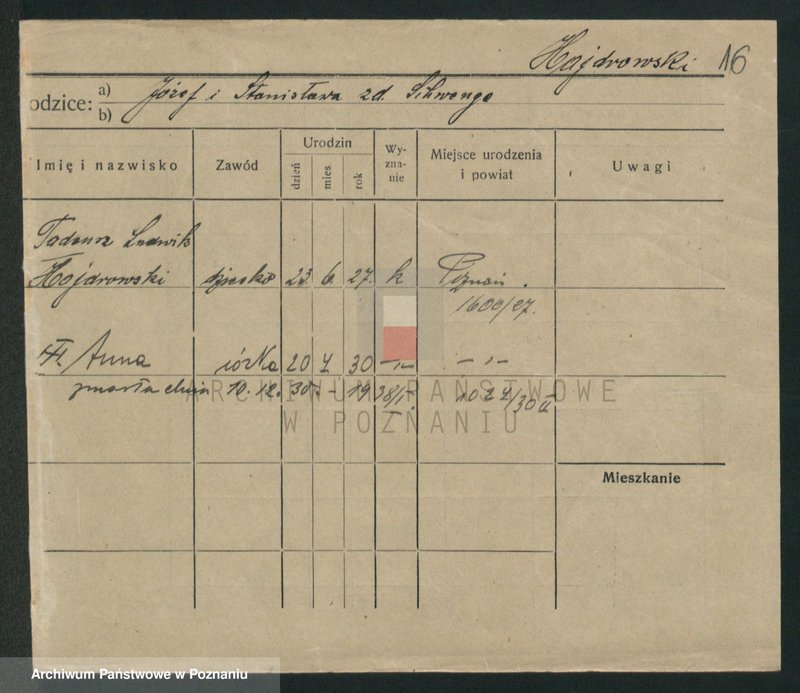 Hajdrowski 16
odzice: a) Józef i Stanisława zd. Schwenge
b)
Imię i nazwisko Zawód Urodzin dzień mies. rok Wyznanie Miejsce urodzenia i powiat Uwagi
Tadeusz Ludwik
Hajdrowski dziecko 23 6. 27. k Poznań.
1600/27.
Anna córka 20 7. 30 -„- -„-
zmarła dnia 10. 12. 30. - 1938/I. 1027/30 II
Mieszkanie
ARCHIWUM PAŃSTWOWE
W POZNANIU
Archiwum Państwowe w Poznaniu